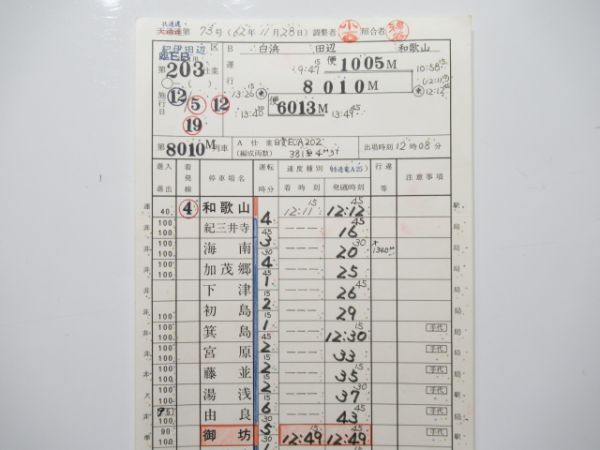 共通運
天通運第 73号 (62年11月28日) 調整者 照合者
紀伊田辺 区
B 白浜 田辺 和歌山
第203仕業
運行
9:47 15 便 1005M 10:58 15
8010M 12:12
13:20 便 6013M 13:49 45
13:40
施行日 12 5 12 19
第8010M列車
A 仕業
(編成両数) 381系
出場時刻 12時08分
進入 進出 着発線 停車場名 運転時分 速度種別 (特通電A25) 着時刻 発通時刻 行違等 注意事項
40 4 和歌山 12:11 15 12:12 45 駅
100 100 紀三井寺 4 45 16 45
100 100 海南 3 20 30
100 100 加茂郷 4 45 25
下津 1 15 26 45
100 初島 2 15 29
100 100 箕島 1 45 12:30 45 手代
100 100 宮原 2 15 33 手代
100 100 藤並 2 15 35 15 手代
100 100 湯浅 2 15 37 30 手代
95 100 由良 6 30 43 45 手代
90 100 御坊 5 12:49 15 12:49 45 駅